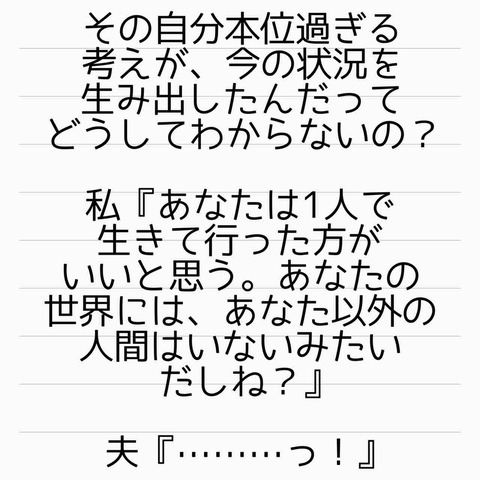 その自分本位過ぎる
考えが、今の状況を
生み出したんだって
どうしてわからないの？
私『あなたは1人で
生きて行った方が
いいと思う。あなたの
世界には、あなた以外の
人間はいないみたい
だしね？』
夫『………っ！』